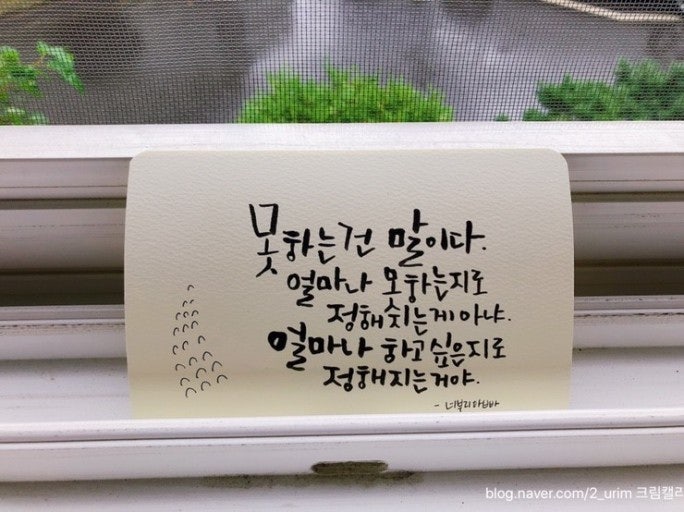 못하는건 말이다.
얼마나 못하는지로
정해지는게 아냐.
얼마나 하고싶은지로
정해지는거야.
blog.naver.com/2_urim 크림캘리